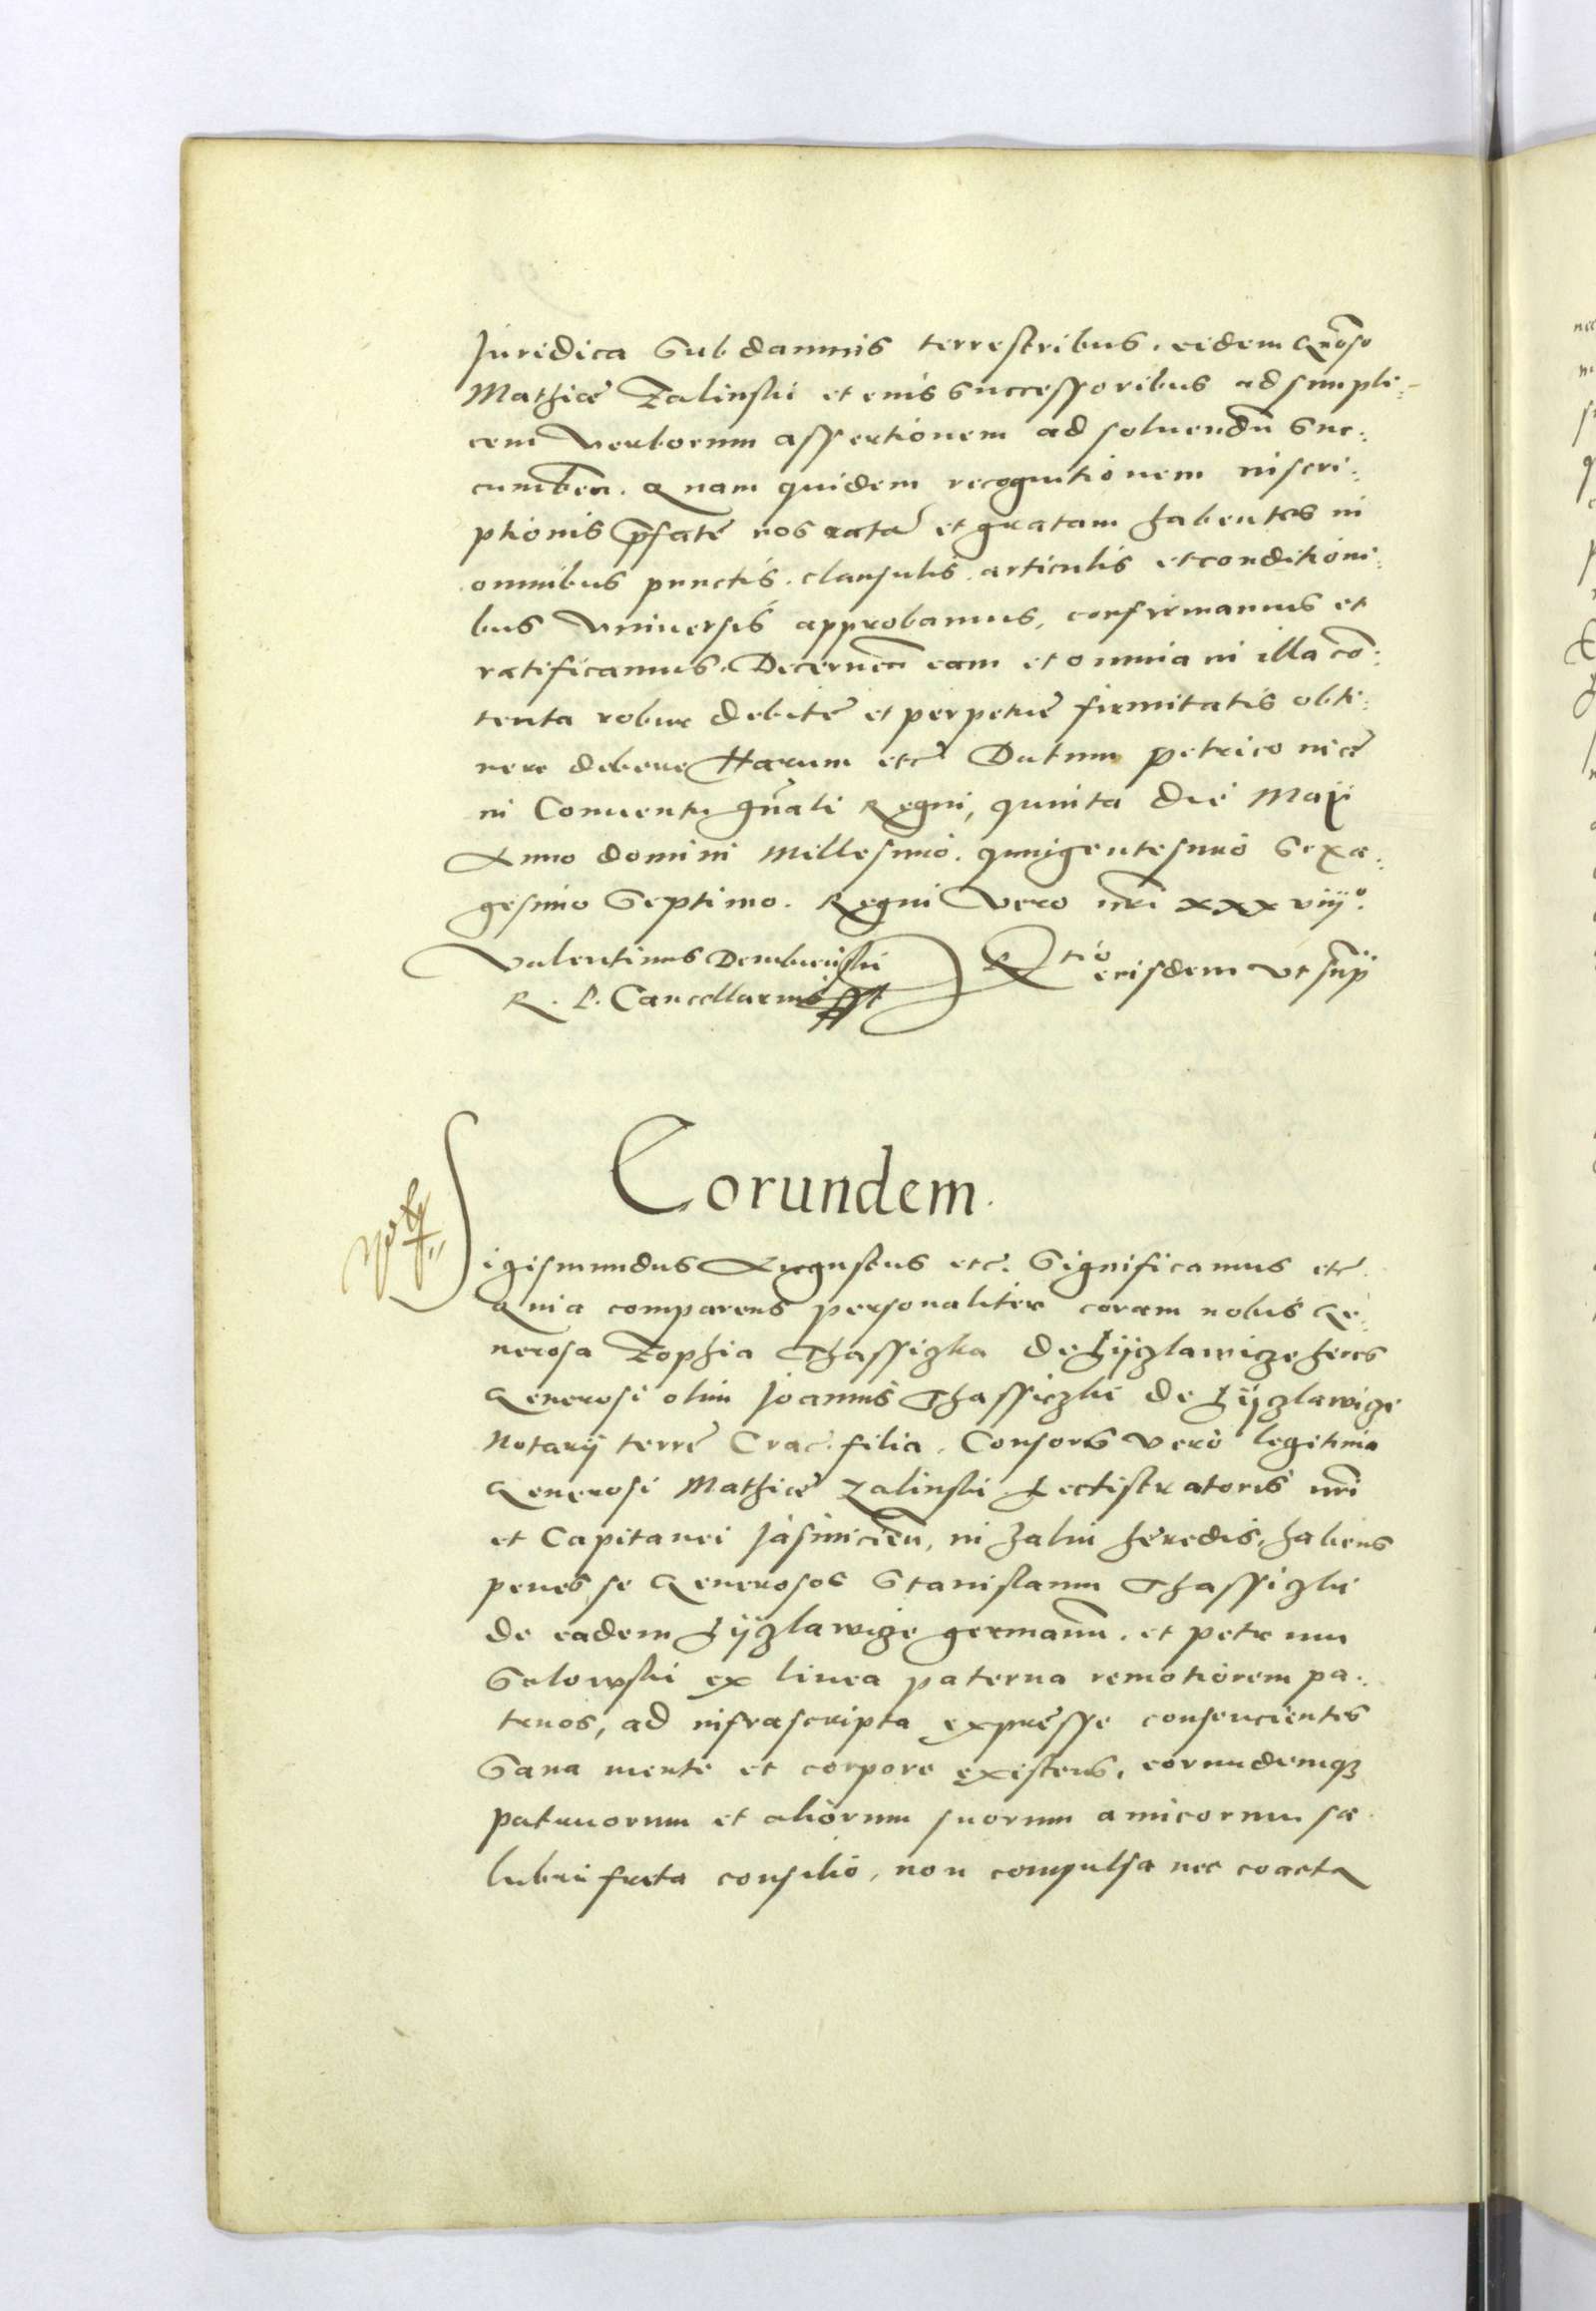 Juridica sub damnis terrestribus. eidem Gnoso
Mathiae Zalinski et eius successoribus ad simpli-
cem verborum assertionem ad soluendu suc:
cumben. Quam quidem recognitionem inscri:
ptionis pfate nos rata et gratam habentes in
omnibus punctis. clausulis. articulis et conditioni:
bus vniuersis approbamus, confirmamus et
ratificamus. Decernen eam et omnia in illa co:
tenta robur debite et perpetue firmitatis obti:
nere debere Harum etc Datum petricouice
in Conuentu gnali Regni, quinta die Maij
Anno domini Millesimo. quingentesimo sexa:
gesimo septimo. Regni vero nri xxxviijº.
Valentinus Dembienski
R. P. Cancellarius sst
Rtio eiusdem vt supr
Eorundem.
Sigismundus Augustus etc. Significamus etc.
Quia comparens personaliter coram nobis Ge:
nerosa Zophia Thassizka de Lyczlawicze heres
Generosi olim Joannis Thassiczki de Lyczlawicze
Notarij terre Crac. filia. Consors vero legitima
Generosi Mathiae Zalinski Lectistratoris nri
et Capitanei Jasinicien, in Zalin heredis, habens
penes se Generosos Stanislaum Thassiczki
de eadem Lyczlawicze germanu. et petrum
Gelowski ex linea paterna remotiorem pa:
truos, ad infrascripta expresse consencientes
Sana mente et corpore existens, eorundemq3
patruorum et aliorum suorum amicorum sa
lubri freta consilio, non compulsa nec coacta